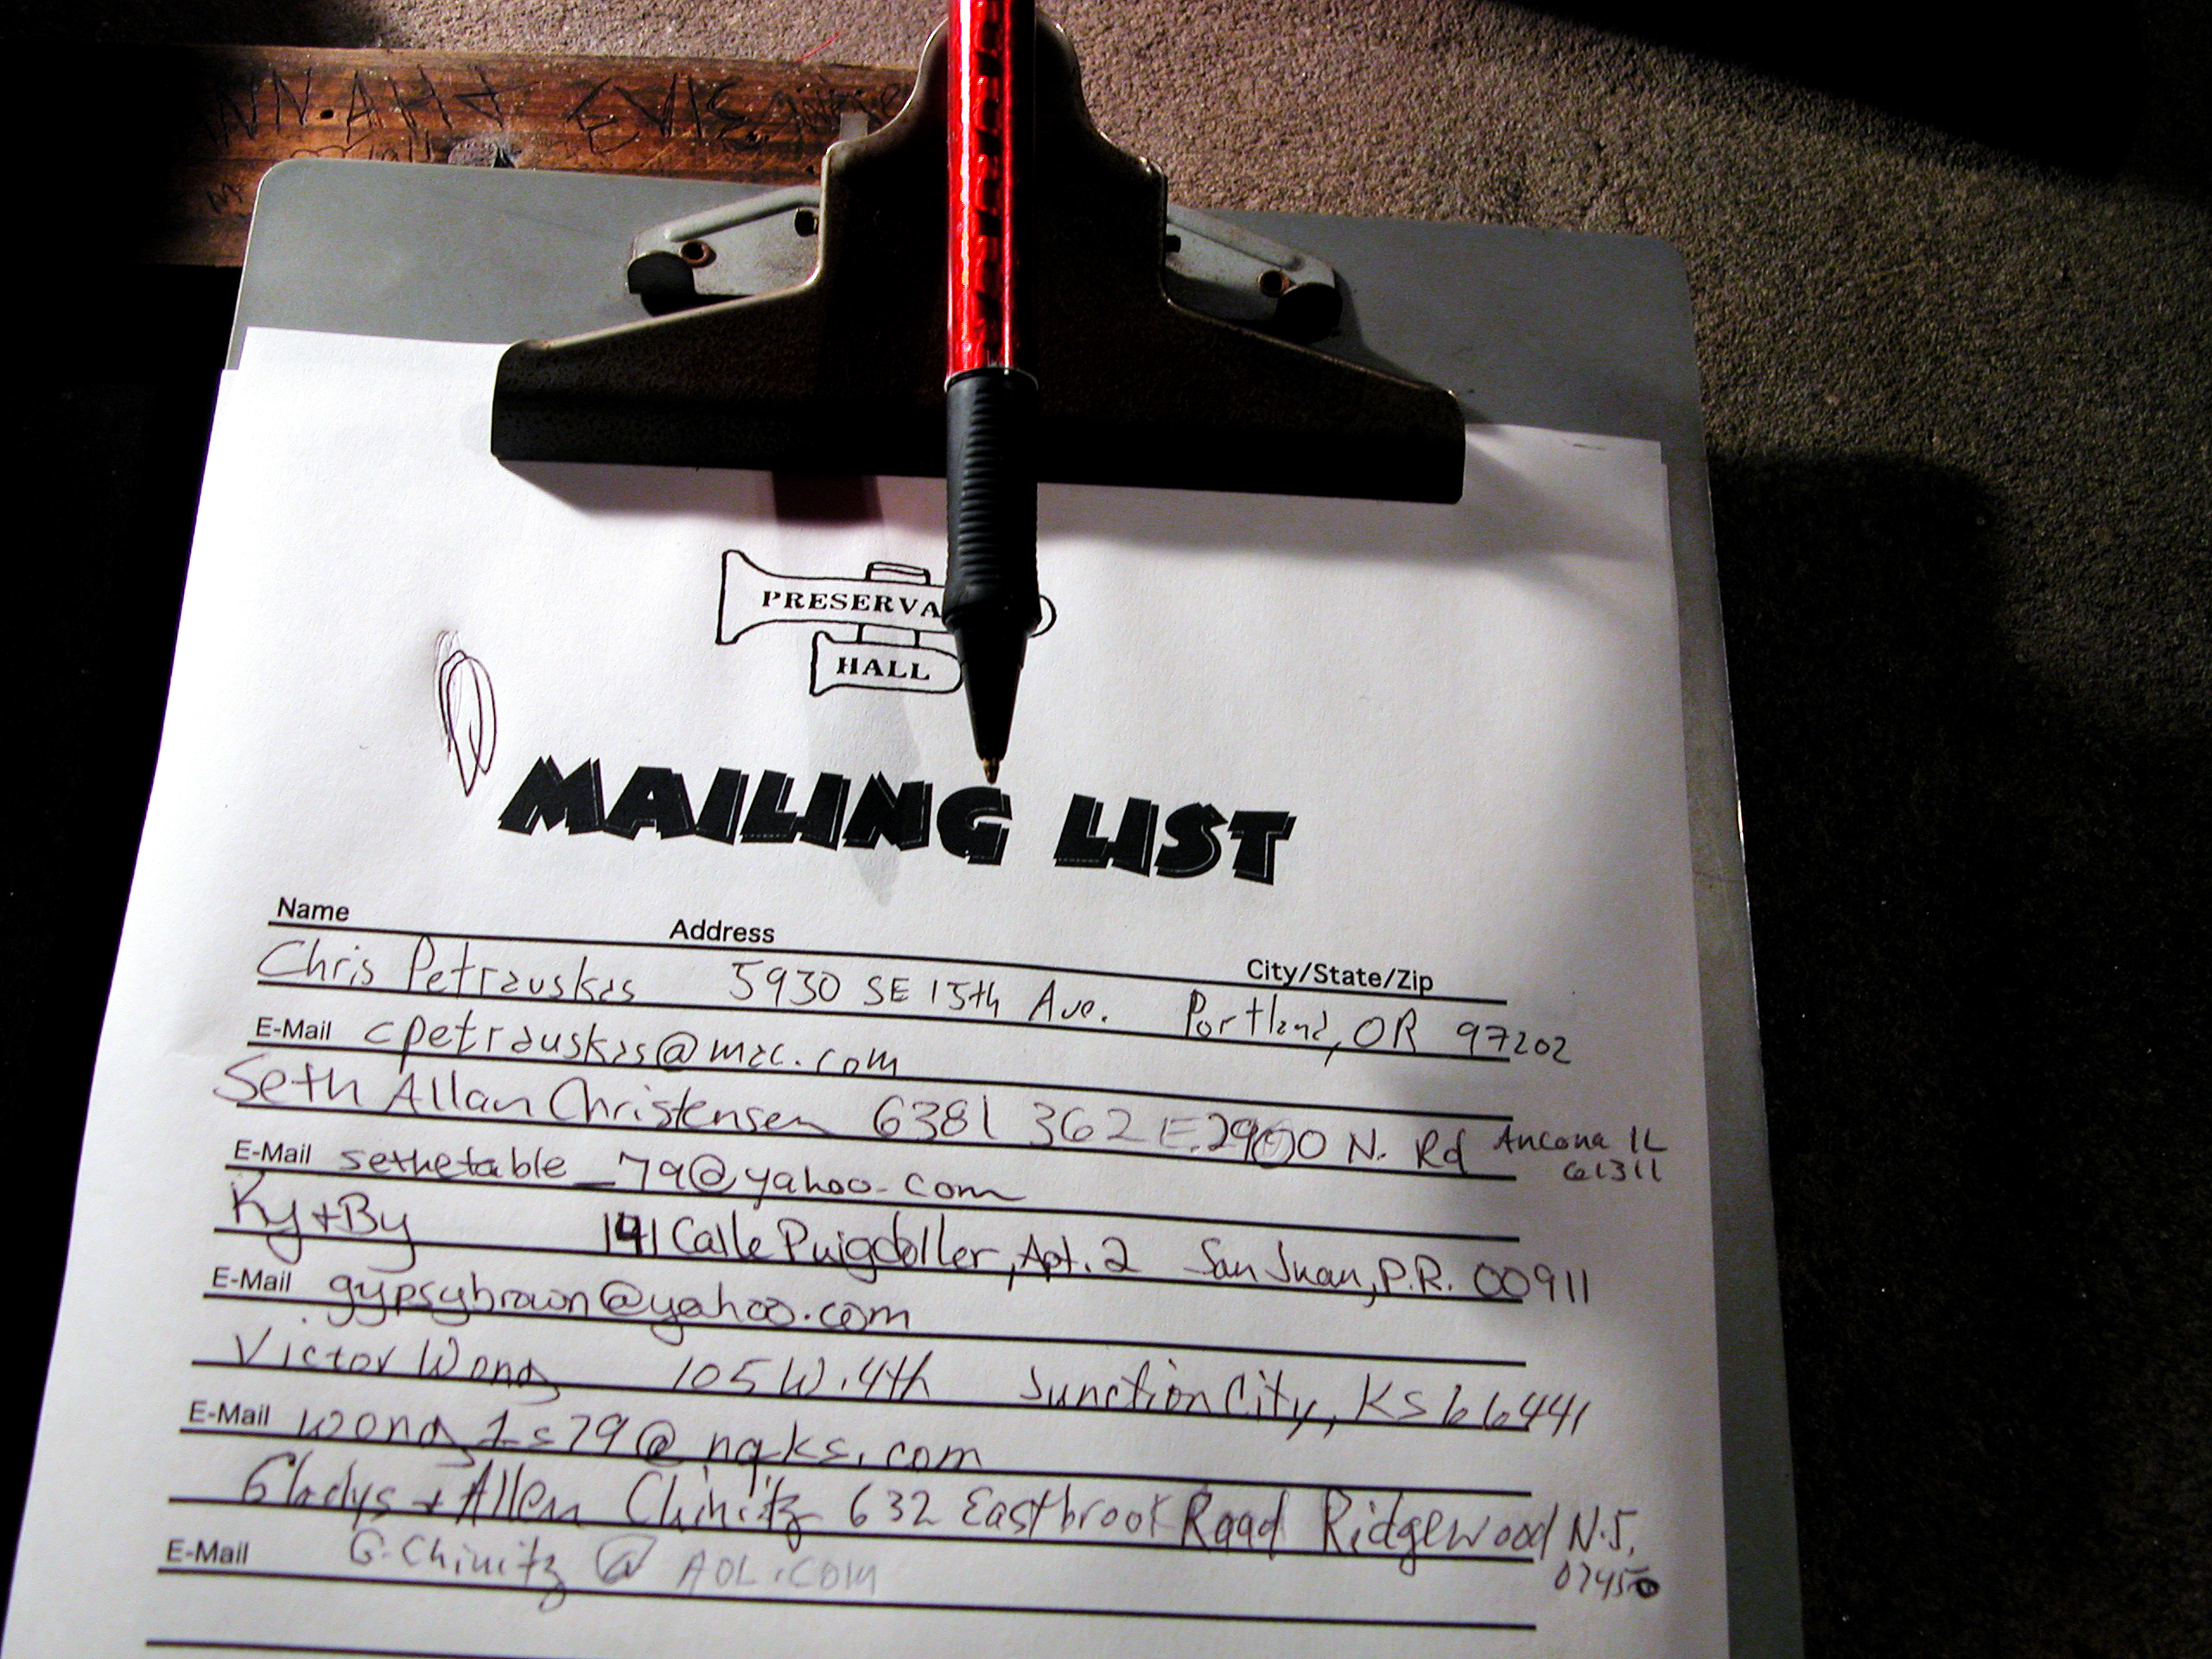 PRESERVA
HALL
MAILING LIST
Name Address City/State/Zip
Chris Petrauskas 5930 SE 15th Ave. Portland, OR 97202
E-Mail cpetrauskas@mac.com
Seth Allan Christensen 6381 362 E. 2900 N. Rd Ancona IL
61311
E-Mail sethetable_79@yahoo.com
Ky + By 141 Calle Puigdoller, Apt. 2 San Juan, P.R. 00911
E-Mail gypsybrown@yahoo.com
Victor Wong 105 W. 4th Junction City, KS 66441
E-Mail
Gladys + Allen Chinitz 632 Eastbrook Road Ridgewood N.J.
07450
E-Mail G.Chinitz @ AOL.COM